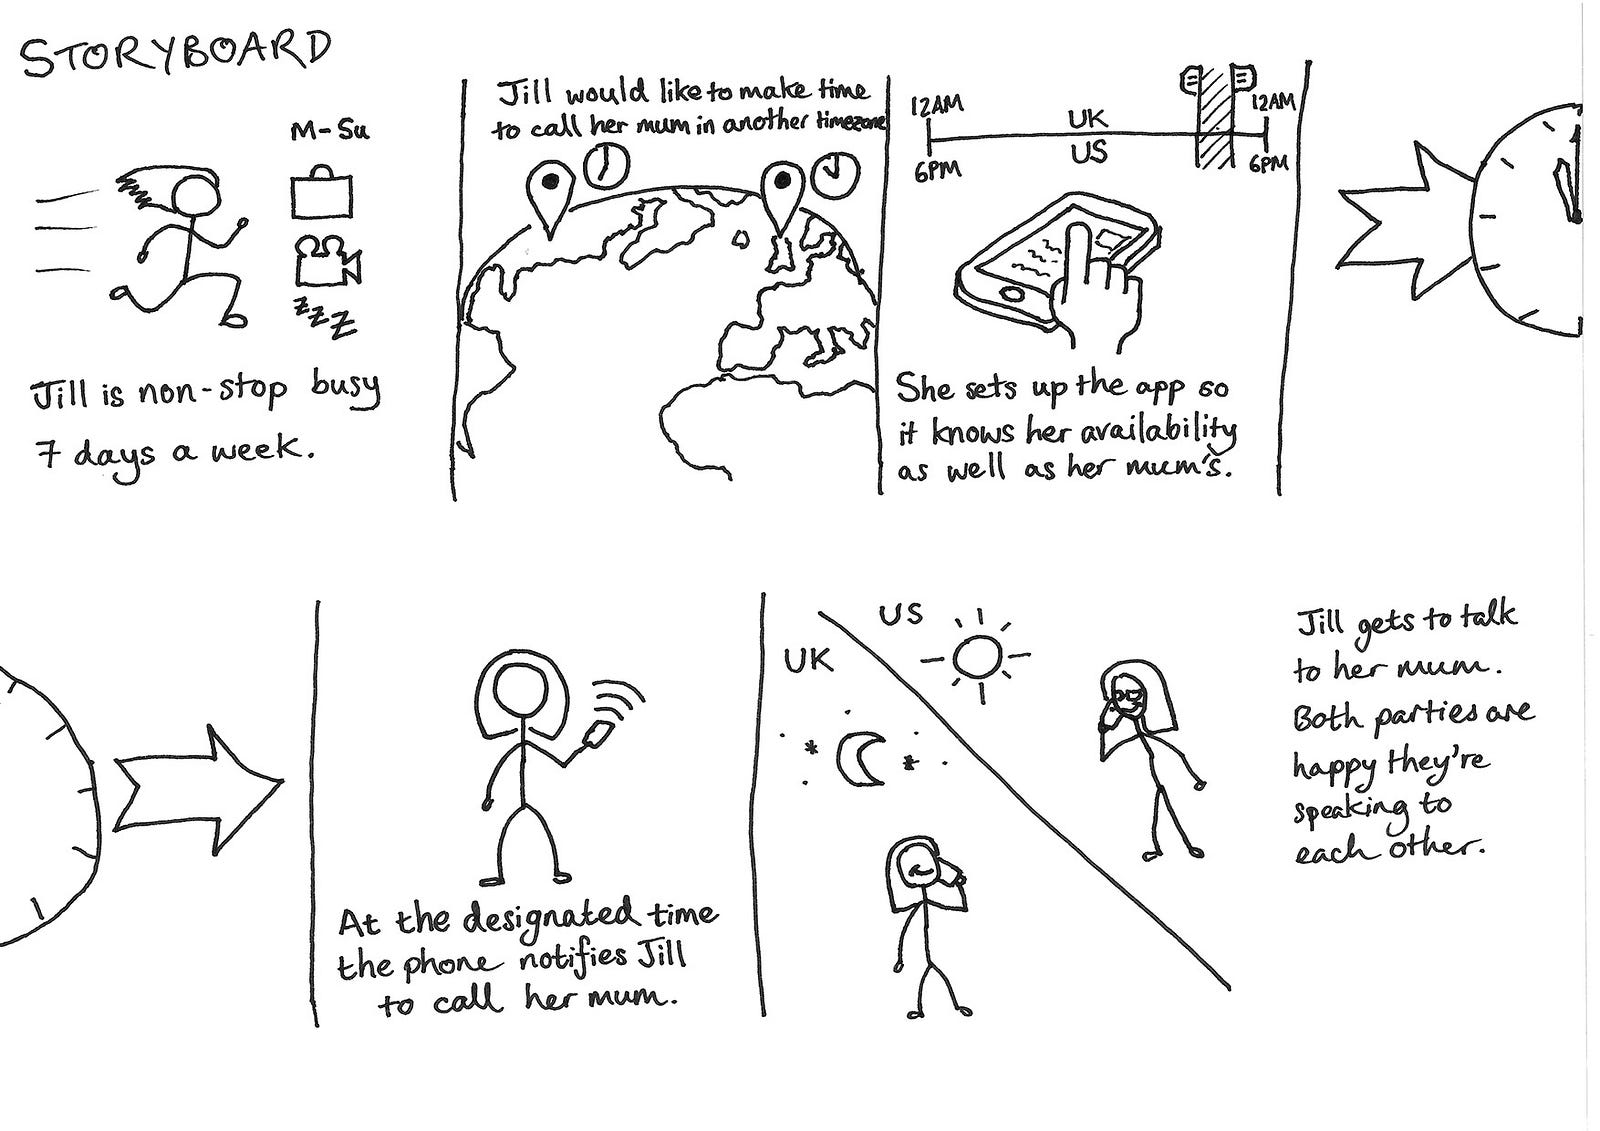 STORYBOARD
M-Su
zzz
Jill is non-stop busy
7 days a week.
Jill would like to make time
to call her mum in another timezone
12AM
UK
12AM
6PM
US
6PM
She sets up the app so
it knows her availability
as well as her mum's.
At the designated time
the phone notifies Jill
to call her mum.
US
UK
Jill gets to talk
to her mum.
Both parties are
happy they're
speaking to
each other.